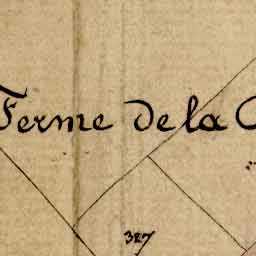 Ferme de la
327